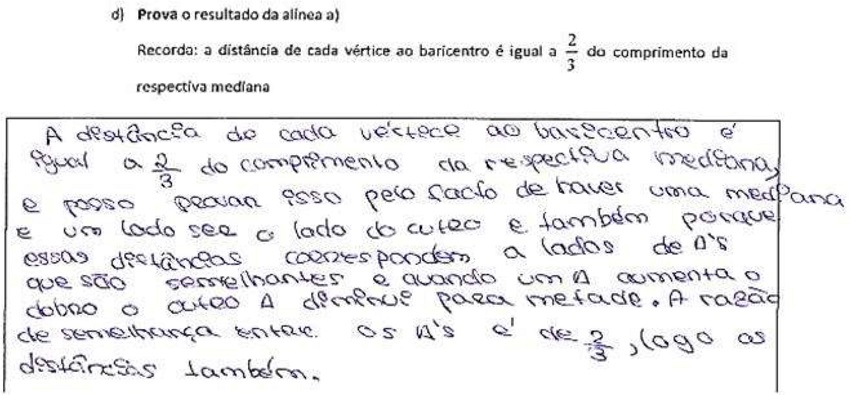 d) Prova o resultado da alínea a)
Recorda: a distância de cada vértice ao baricentro é igual a 2/3 do comprimento da
respectiva mediana
A distância de cada vértece ao baricentro é
igual a 2/3 do comprimento da respectiva mediana,
e posso provar isso pelo facto de haver uma mediana
e um lado ser o lado do outro e também porque
essas distâncias correspondem a lados de Δ's
que são semelhantes e quando um Δ aumenta o
dobro o outro Δ diminui para metade. A razão
de semelhança entre os Δ's é de 2/3, logo as
distâncias também.